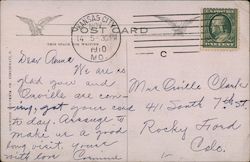 KANSAS CITY
POST CARD
5-30PM
1910
MO.
C
THIS SPACE FOR WRITING
Dear Anna
We are so
glad you and
Orville are com-
ing, got your card
to day. Arrange to
make us a good
long visit. yours
with love
Mrs Orville Clark
411 South 7th St.
Rocky Ford
Colo.